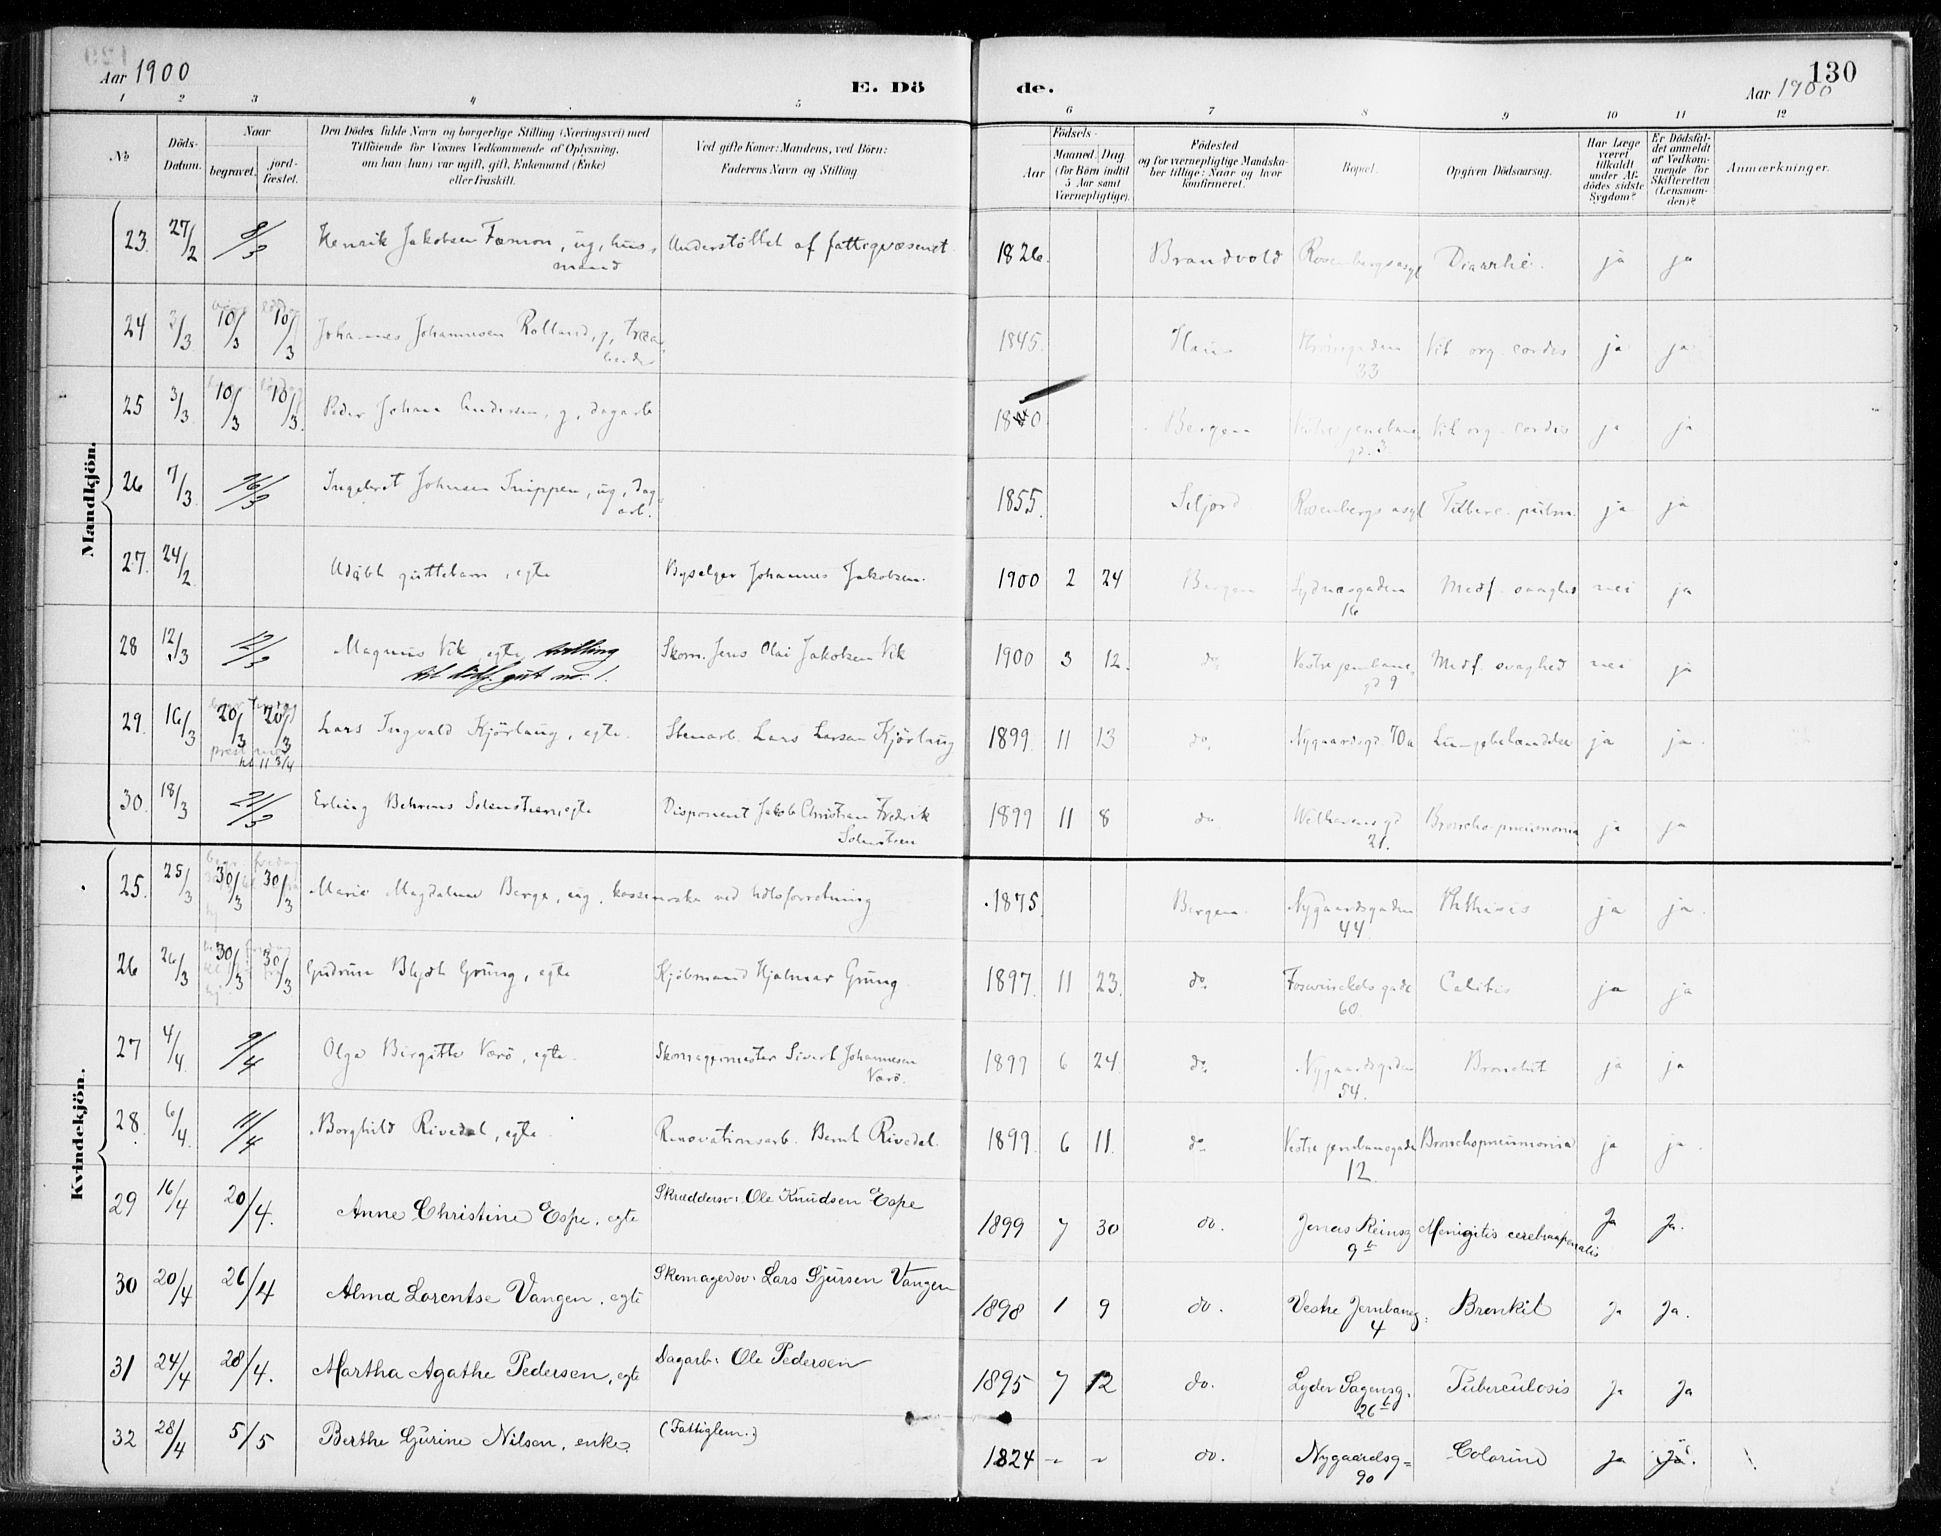 Aar 1900
E. Döde.
130
Aar 1900
1 2 3 4 5 6 7 8 9 10 11 12
No
Döds-Datum.
Naar
begravet.
jord-fæstet.
Den Dödes fulde Navn og borgerlige Stilling (Næringsvei) med
Tilföiende for Voxnes Vedkommende af Oplysning,
om han (hun) var ugift, gift, Enkemand (Enke)
eller fraskilt.
Ved gifte Koner: Mandens, ved Börn:
Faderens Navn og Stilling
Födsels-
Aar
Maaned. Dag
(for Börn indtil
5 Aar samt
Værnepligtige).
Födested
og for værnepligtige Mandska-
ber tillige: Naar og hvor
konfirmeret.
Bopæl.
Opgiven Dödsaarsag.
Har Læge
været
tilkaldt
under Af-
dödes sidste
Sygdom?
Er Dödsfal-
det anmeldt
af Vedkom-
mende for
Skifteretten
(Lensman-
den)?
Anmærkninger.
Mandkjön.
23. 27/2 8/3 Henrik Jakobsen, ug, hus-
mand Understöttet af fattigvæsenet 1826. Brandvold Rosenbergs asyl Diarrhé. ja ja
24 3/3 10/3 10/3 Johannes Johannesen Rolland, g, 1845. Haus 33 Vit. org. cordis ja ja
25 3/3 10/3 10/3. Peder Johan Andersen, g, dagarb 1840 Bergen Vestre jernbane
gd. 3 Vit org. cordis ja ja
26 7/3 16/3 Ingebret Johnsen, ug, dag-
arb. 1855. Seljord Rosenbergs asyl Tuberc. pulm. ja ja
27. 24/2 Udöbt guttebarn, egte Johannes Jakobsen. 1900 2 24 Bergen Sydnæsgaden
16 Medf. svaghed nei ja
28 12/3 12/3 Magnus Vik, egte, tvilling
til gut no. 1. Skom. Jens Olai Jakobsen Vik 1900 3 12. do. Vestre jernbane-
gd 9 Medf. svaghed nei ja
29. 16/3 20/3 20/3 Lars Ingvald Kjörlaug, egte. Stenarb. Lars Larsen Kjörlaug 1899 11 13 do. Nygaardsgd. 70a Lungebetændelse ja ja.
30. 18/3 21/3 Erling Behrens egte Disponent Jakob Christian Fredrik 1899 11 8 do Welhavensgd
21. Broncho pneumonia ja ja
Kvindekjön.
25. 25/3 30/3 30/3 Marie Magdalene Berge, ug, ved 1875. Bergen. Nygaardsgaden
44 Phthisis ja ja.
26 26/3 30/3 30/3 Gudrun Blydt Grung, egte Kjöbmand Hjalmar Grung 1897. 11 23. do. Foswinckels gade
60. ja ja
27 4/4. 9/4 Olga Birgitte Værö, egte. Skomagermester Sivert Johannesen
Værö. 1899 6 24 do. Nygaardsgaden
54. Bronchit ja ja
28. 6/4. 11/4 Borghild Rivedal, egte. Renovationsarb. Bernt Rivedal. 1899. 6 11. do Vestre jernbanegade
12. Bronchopneumonia ja ja.
29 16/4 20/4. Anne Christine Espe, egte Skræddersv: Ole Knudsen Espe 1899 7 30 do. Jonas Reinsg
9b Menigitis Ja Ja.
30 20/4 26/4 Alma Lorentse Vangen, egte Skomagersv: Lars Gjursen Vangen 1898 1 9 do. Vestre Jernbaneg:
4 Bronkit Ja Ja.
31 24/4 28/4. Martha Agathe Pedersen, egte Dagarb: Ole Pedersen 1895 7 12 do. Lyder Sagensg.
26b Tuberculosis Ja Ja
32 28/4 5/5 Berthe Gurine Nilsen, enke. (Fattiglem.) 1824 do. Nygaardsg=
90 Ja Ja.